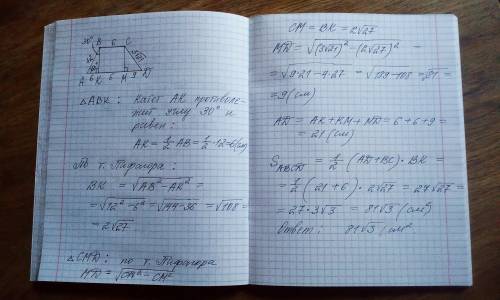 30° B 6 C
12 3√21
A 6 K 6 M 9 D
△ABK: Катет AK противоле-
жит углу 30° и
равен:
AK = 1/2 AB = 1/2 · 12 = 6 (см)
По т. Пифагора:
BK = √AB² - AK² =
= √12² - 6² = √144 - 36 = √108 =
= 2√27
△CMD: по т. Пифагора
MD = √CD² - CM²
CM = BK = 2√27
MD = √(3√21)² - (2√27)² =
= √9·21 - 4·27 = √189 - 108 = √81 =
= 9 (см)
AD = AK + KM + MD = 6 + 6 + 9 =
= 21 (см)
S ABCD = 1/2 (AD + BC) · BK =
= 1/2 (21 + 6) · 2√27 = 27√27 =
= 27 · 3√3 = 81√3 (см²)
Ответ: 81√3 см²